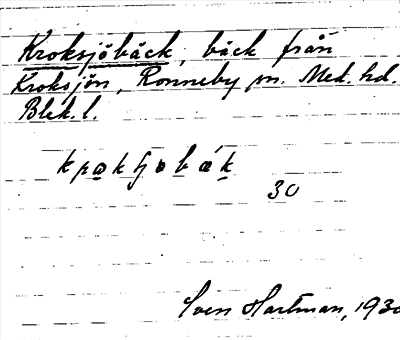 Kroksjöbäck, bäck från
Kroksjön, Ronneby sn. Med. hd.
Blek. l.
30
Sven Hartman, 1930